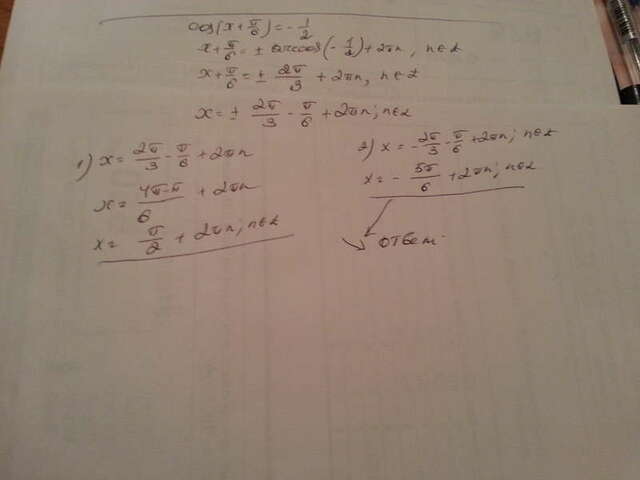 cos(x + π/6) = - 1/2
x + π/6 = ± arccos(- 1/2) + 2πn, n∈Z
x + π/6 = ± 2π/3 + 2πn, n∈Z
x = ± 2π/3 - π/6 + 2πn; n∈Z
1) x = 2π/3 - π/6 + 2πn
x = 4π-π/6 + 2πn
x = π/2 + 2πn; n∈Z
2) x = - 2π/3 - π/6 + 2πn; n∈Z
x = - 5π/6 + 2πn; n∈Z
ответ.